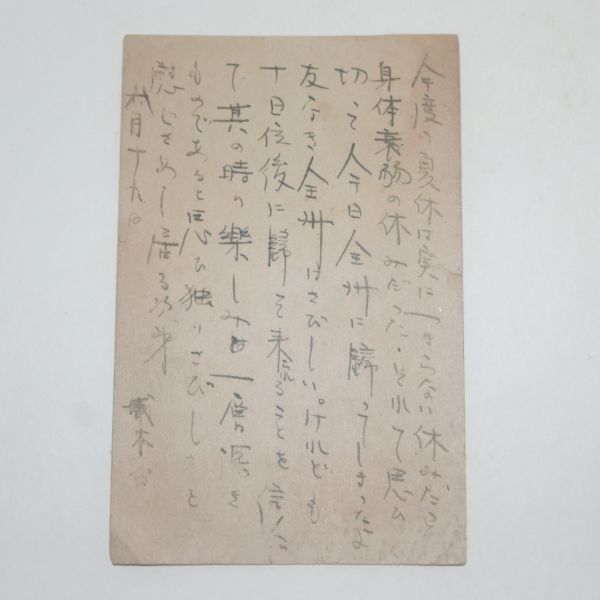 今度の夏休は実に つまらない休みだつた
身体衰弱の休みだつた、それで思ひ
切つて今日全州に歸つてしまつたよ
友なき全州はさびしい。けれども
十日位後に歸て来れることを信じ
で其の時の樂しみは一層深き
ものであると思ひ独りさびしさと
慰じさめし居る次第
八月十九日